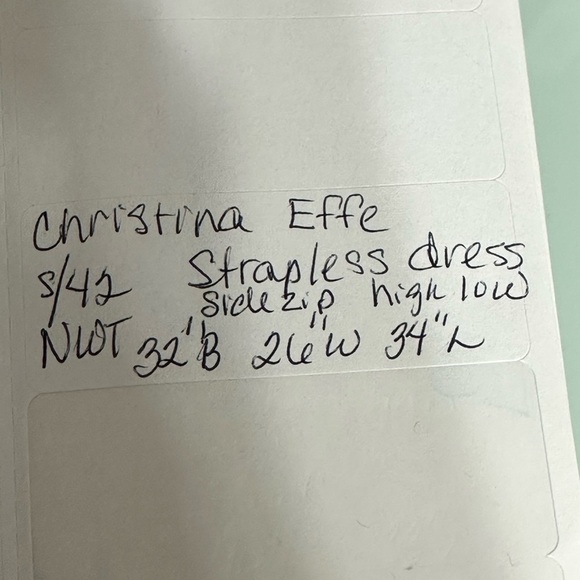 Christina Effe
S/42 Strapless dress
side zip high low
NWT 32"B 26"W 34"L